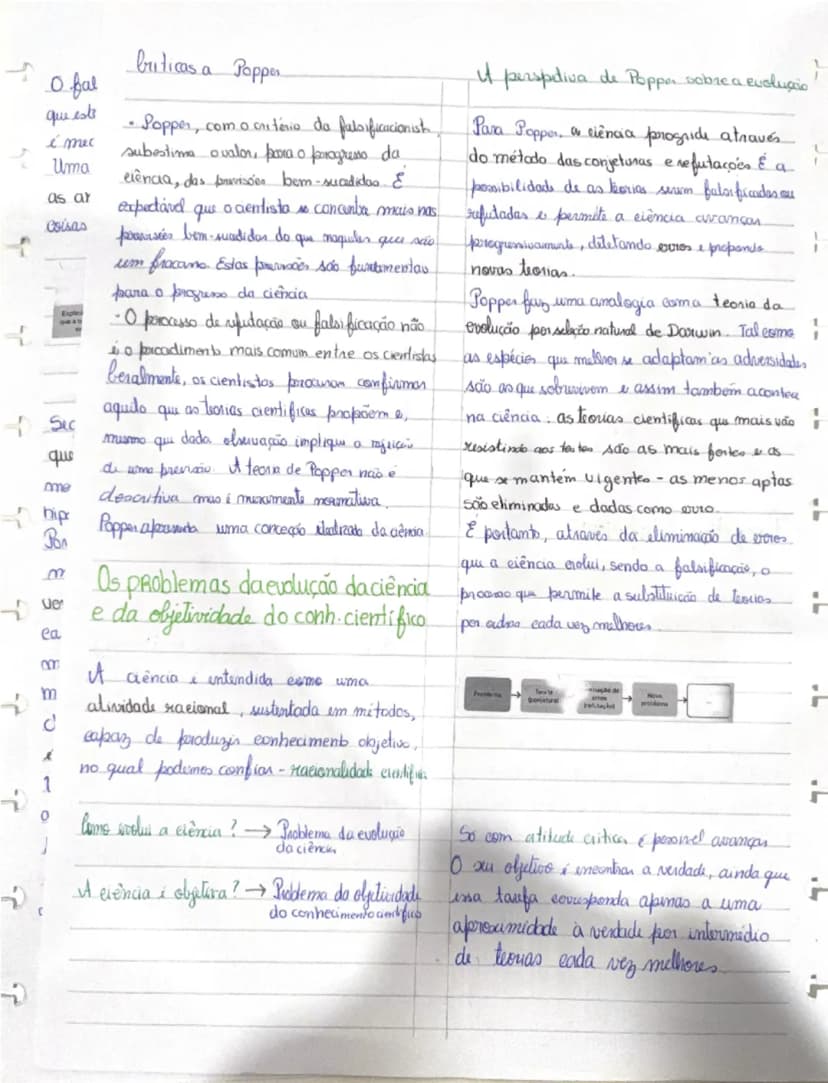 O fal
que este
é mec
Uma
as ar
coisas
Sec
que
me
hipr
Por
m
ver
ea
m
m
d
é
1
o
Críticas a Popper
• Popper, com o critério do falsificacionist
subestima o valor, para o progresso da
ciência, das previsões bem-sucedidas. É
expectável que o cientista se concentre mais nas
previsões bem-sucedidas do que naquelas que são
um fracasso. Estas previsões são fundamentais
para o progresso da ciência
• O processo de refutação ou falsificação não
é o procedimento mais comum entre os cientistas
Geralmente, os cientistas procuram confirmar
aquilo que as teorias científicas propõem e,
mesmo que dada observação implique a rejeição
de uma previsão. A teoria de Popper não é
descritiva mas é meramente normativa.
Popper apresenta uma conceção idealizada da ciência.
Os pRoblemas da evolução da ciência
e da objetividade do conh. científico
A ciência é entendida como uma
atividade racional, sustentada em métodos,
capaz de produzir conhecimento objetivo,
no qual podemos confiar - racionalidade científica
Como evolui a ciência? → Problema da evolução
da ciência
A ciência é objetiva? → Problema da objetividade
do conhecimento científico
A perspetiva de Popper sobre a evolução
Para Popper, a ciência progride através
do método das conjeturas e refutações É a
possibilidade de as teorias serem falsificadas ou
refutadas e permite a ciência avançar
progressivamente, detetando erros e propondo
novas teorias.
Popper faz uma analogia com a teoria da
evolução por seleção natural de Darwin. Tal como
as espécies que melhor se adaptam às adversidades
são as que sobrevivem e assim também acontece
na ciência: as teorias científicas que mais vão
resistindo aos testes são as mais fortes e as
que se mantêm vigentes - as menos aptas
são eliminadas e dadas como erro.
É portanto, através da eliminação de erros
que a ciência evolui, sendo a falsificação, o
processo que permite a substituição de teorias
por outras cada vez melhores.
Problema → Teoria (conjetura) → eliminação de erros (refutação) → Novo problema →
Só com atitude crítica é possível avançar
O seu objetivo é encontrar a verdade, ainda que
essa tarefa corresponda apenas a uma
aproximidade à verdade por intermédio
de teorias cada vez melhores.